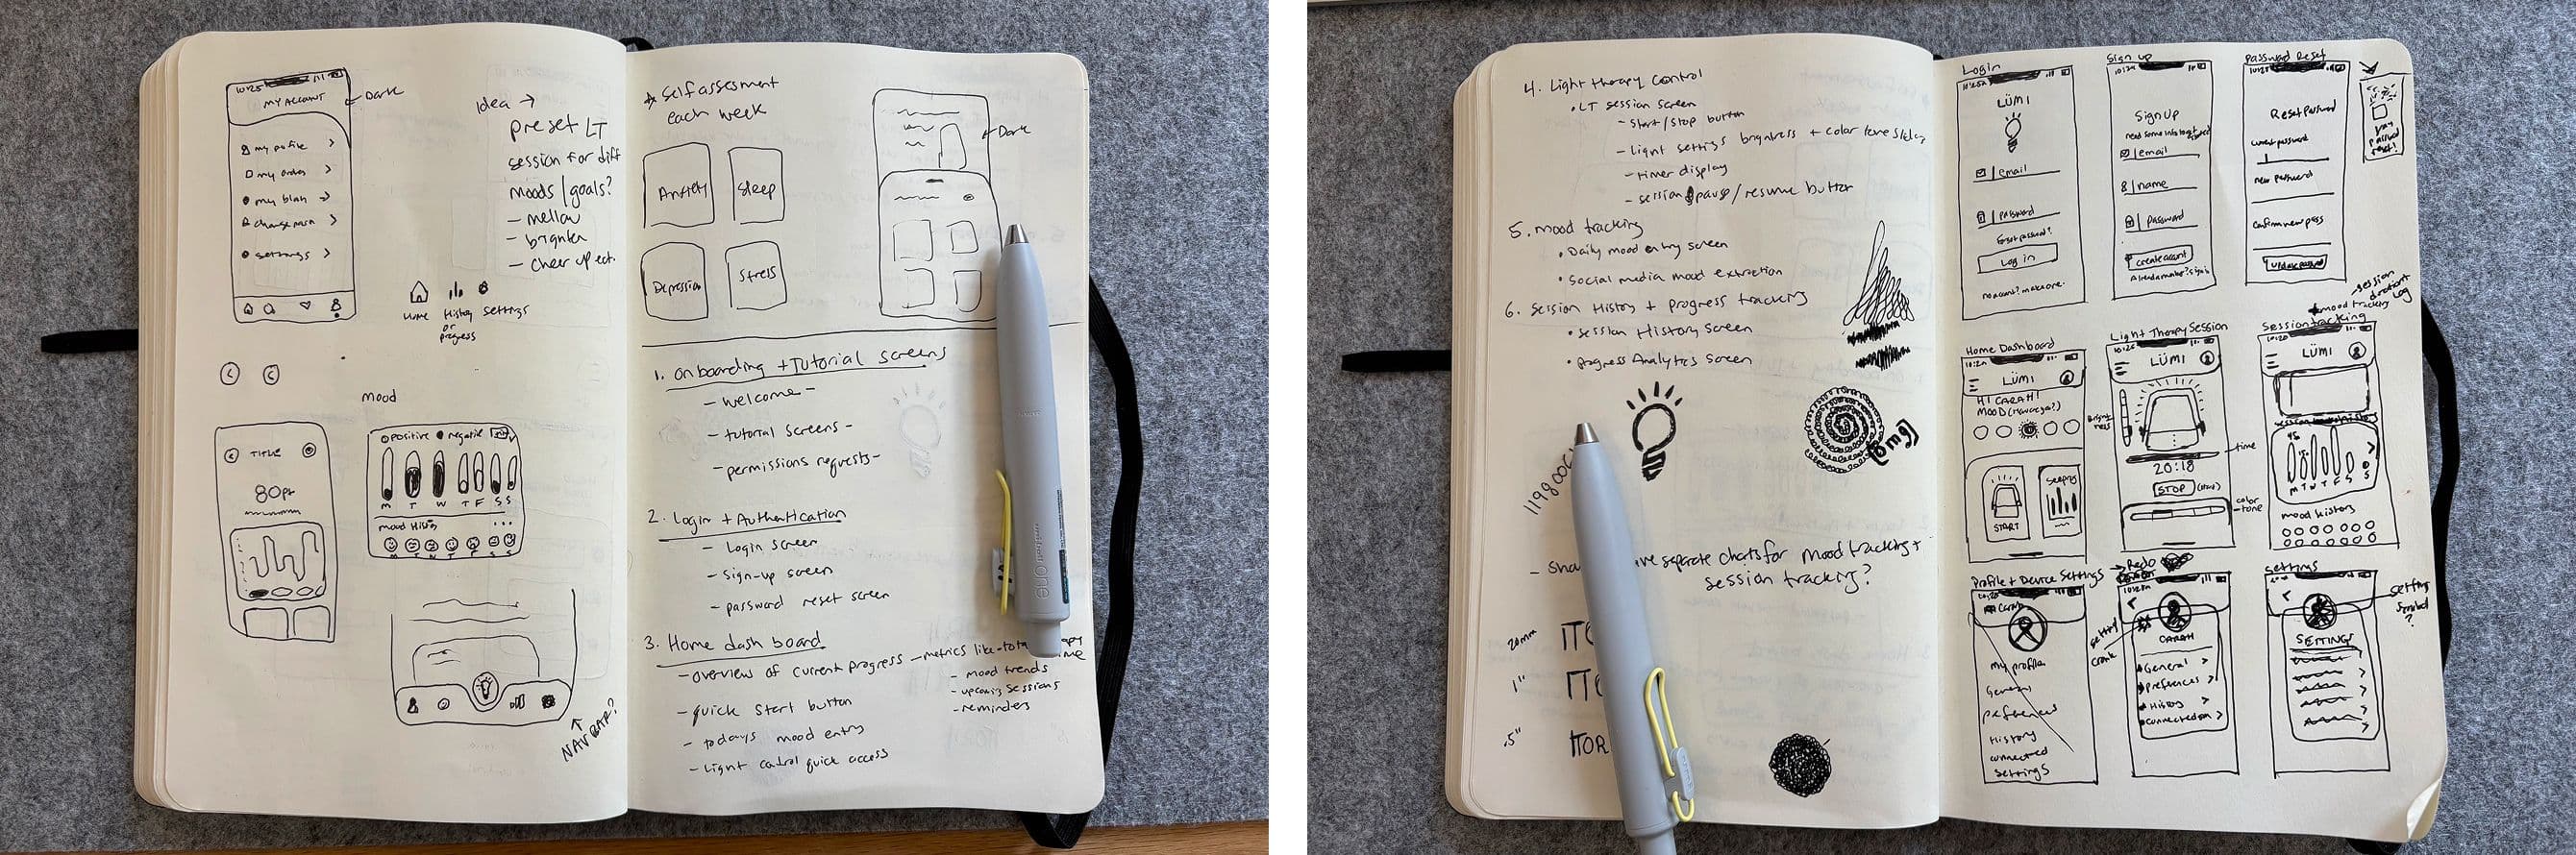 10:25
MY ACCOUNT
Dark
my profile >
my orders >
settings >
Idea →
preset LT
session for diff
moods/goals?
- mellow
- brighten
- cheer up ect.
Home
History
or
progress
settings
mood
TITLE
80pt
positive
negative
M T W T F S S
mood History
M T W T F S S
NAV BAR?
Self assesment
each week
Anxiety
Sleep
Depression
Stress
Dark
1. onboarding + Tutorial screens
- welcome -
- tutorial screens -
- permissions requests -
2. Login + Authentication
- Login screen
- sign-up screen
- password reset screen
3. Home dash board
- overview of current progress - metrics like - total
- mood trends
- upcoming sessions
- reminders
- quick start button
- todays mood entry
- Light control quick access
one
4. Light therapy control
• LT session screen
- start/stop button
- Light settings brightness + color tone
- timer display
- session pause/resume button
5. mood tracking
• Daily mood entry screen
• Social media mood extraction
6. Session History + progress tracking
• session History screen
• progress Analytics screen
separate charts for mood tracking +
session tracking?
20mm
1"
.5"
Login
LÜMI
email
password
forgot password?
Log in
no account? make one.
Sign up
10:25
Sign Up
email
name
password
create account
Password Reset
10:25
Reset Password
current password
new password
confirm new pass
update password
Home Dashboard
LÜMI
HI CARAH!
START
Light Therapy Session
10:25
LÜMI
Brightness
time
20:18
STOP
(start)
color
tone
session
duration
log
mood tracking
Session tracking
LÜMI
M T W T F S S
mood history
Profile + Device Settings → Redo
my profile
General
preferences
History
connected
settings
CARAH
General >
preferences >
History >
settings
SETTINGS
setting
symbol
?